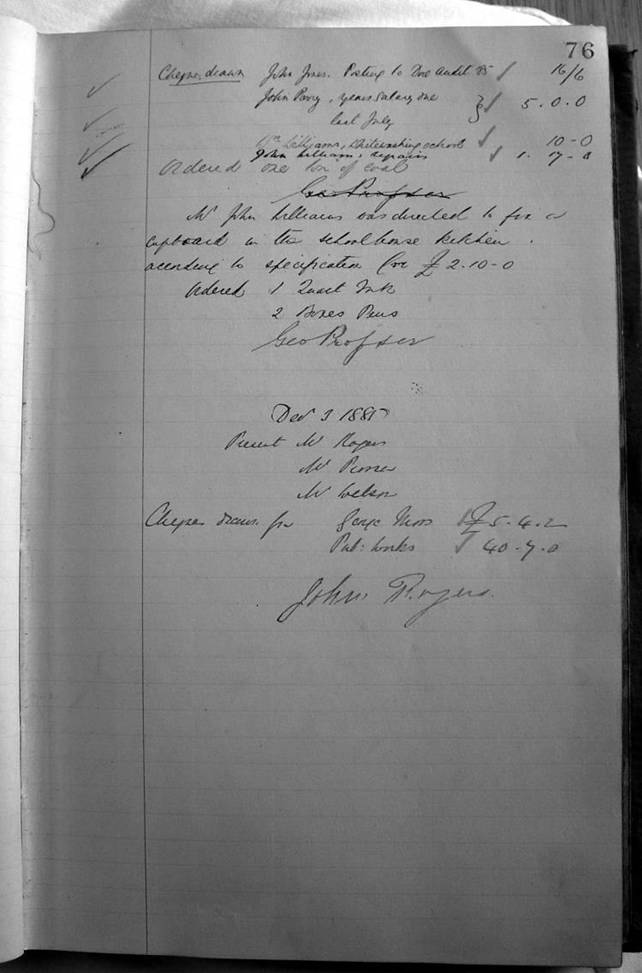 76
Cheques drawn John Jones. Posting to Dec Audit 85 16/6
John Parry, years salary one } 5.0.0
last July
Wm Williams, whitewashing schools 10-0
John Williams, repairs 1. 7-0
Ordered one ton of coal
Geo Professor
Mr John Williams was directed to fix a
cupboard in the schoolhouse kitchen.
according to specification for £2.10-0
Ordered 1 Quart Ink
2 Boxes Pens
Geo
Dec 3 1885
Present Mr Rogers
Mr
Mr Wilson
Cheques drawn for George Moss £5-4-2
Pub: Works 40-7-0
John Rogers.